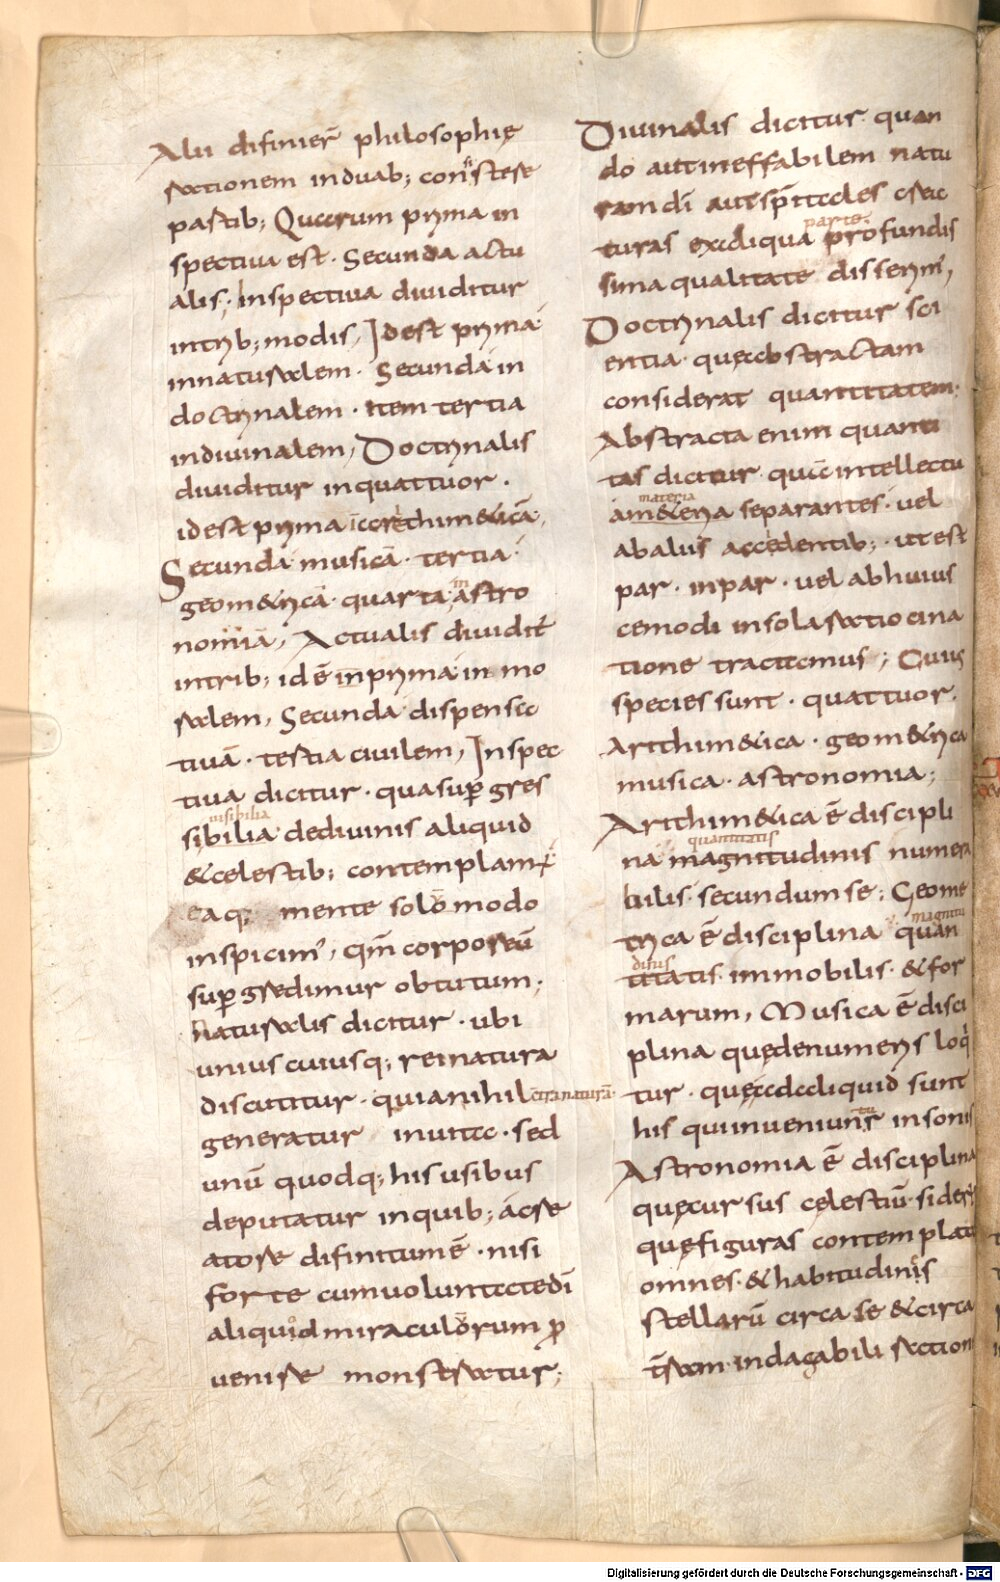 Alii difinier̄ philosophię
rationem induab; consistere
partib; Quarum prima in
spectiua est· Secunda actu
alis; Inspectiua diuiditur
intrib; modis, Idest prima·
innaturalem· Secunda in
doctrinalem· Item tertia
indiuinalem, Doctrinalis
diuiditur inquattuor·
idest prima inarithm&icā,
Secunda musicā· tertia·
geom&ricā quarta in astro
nomiā, Actualis diuidit̄
intrib; id ē inprima in mo
ralem, Secunda dispensa
tiuā· tertia ciuilem, Inspec
tiua dicitur· qua suꝑgres
uisibilia
sibilia dediuinis aliquid
&celestib; contemplam̄
eaq; mente solōmodo
inspicim', qm̄ corporeū
suꝑgredimur obtutum;
Naturalis dicitur· ubi
unius cuiusq; rei natura
discutitur· quia nihil cōtra naturā·
generatur inuita· sed
unū quodq; his usibus
deputatur inquib; acre
atore difinitum ē· nisi
forte cumuoluntate dī
aliquid miraculōrum ꝓ
uenire monstratur;
Diuinalis dicitur quan
do aut ineffabilem natu
ram dī aut sp̄itales crea
parte·
turas exaliqua profundis
sima qualitate disserim',
Doctrinalis dicitur sci
entia· quę abstractam
considerat quantitatem·
Abstracta enim quanti
tas dicitur· quā intellectu
materia
am&eria separantes· uel
abaliis accedentib;· utest
par· inpar· uel abhuius
cemodi insola ratiocina
tione tractamus; Cuius
species sunt· quattuor·
Arithm&ica· geom&rica
musica· astronomia;
Arithm&ica ē discipli
quantitatis
na magnitudinis numera
bilis secundum se; Geome
magnitu
trica ē disciplina quan
dinis
titatis immobilis· &for
marum, Musica ē disci
plina quę denumeris loq
tur· quę adaliquid sunt
his qui inueniuntur insonis
Astronomia ē disciplina
quę cursus cęlestiū· siderū
quę figuras contemplat
omnes· &habitudinis
stellarū circa se &circa
t̄ram indagabili ration
Digitalisierung gefördert durch die Deutsche Forschungsgemeinschaft - DFG